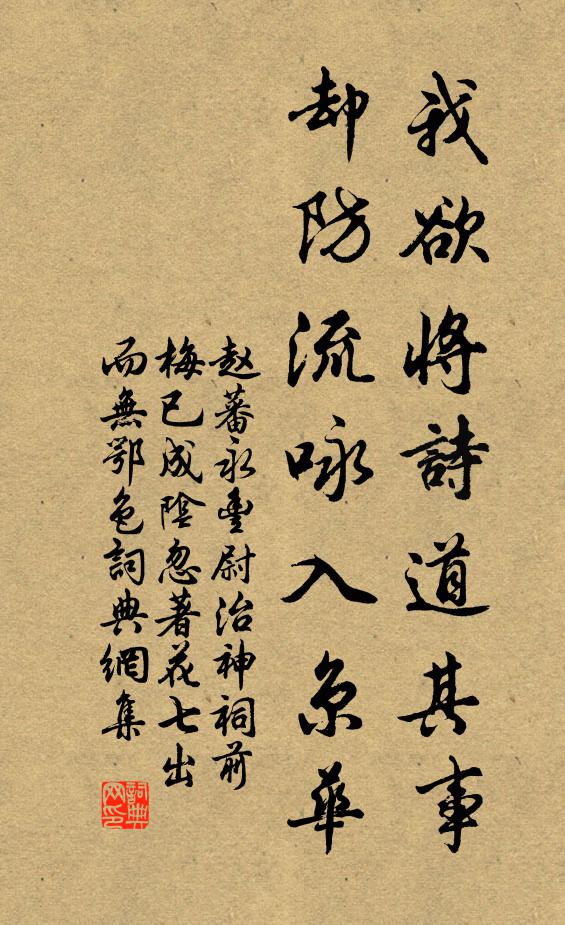 我欲將詩道其事
却防流咏入京華
赵蕃永豐尉治神祠前
梅已成陰忽著花七出
而無鄂色詞典網集
詞典
网印